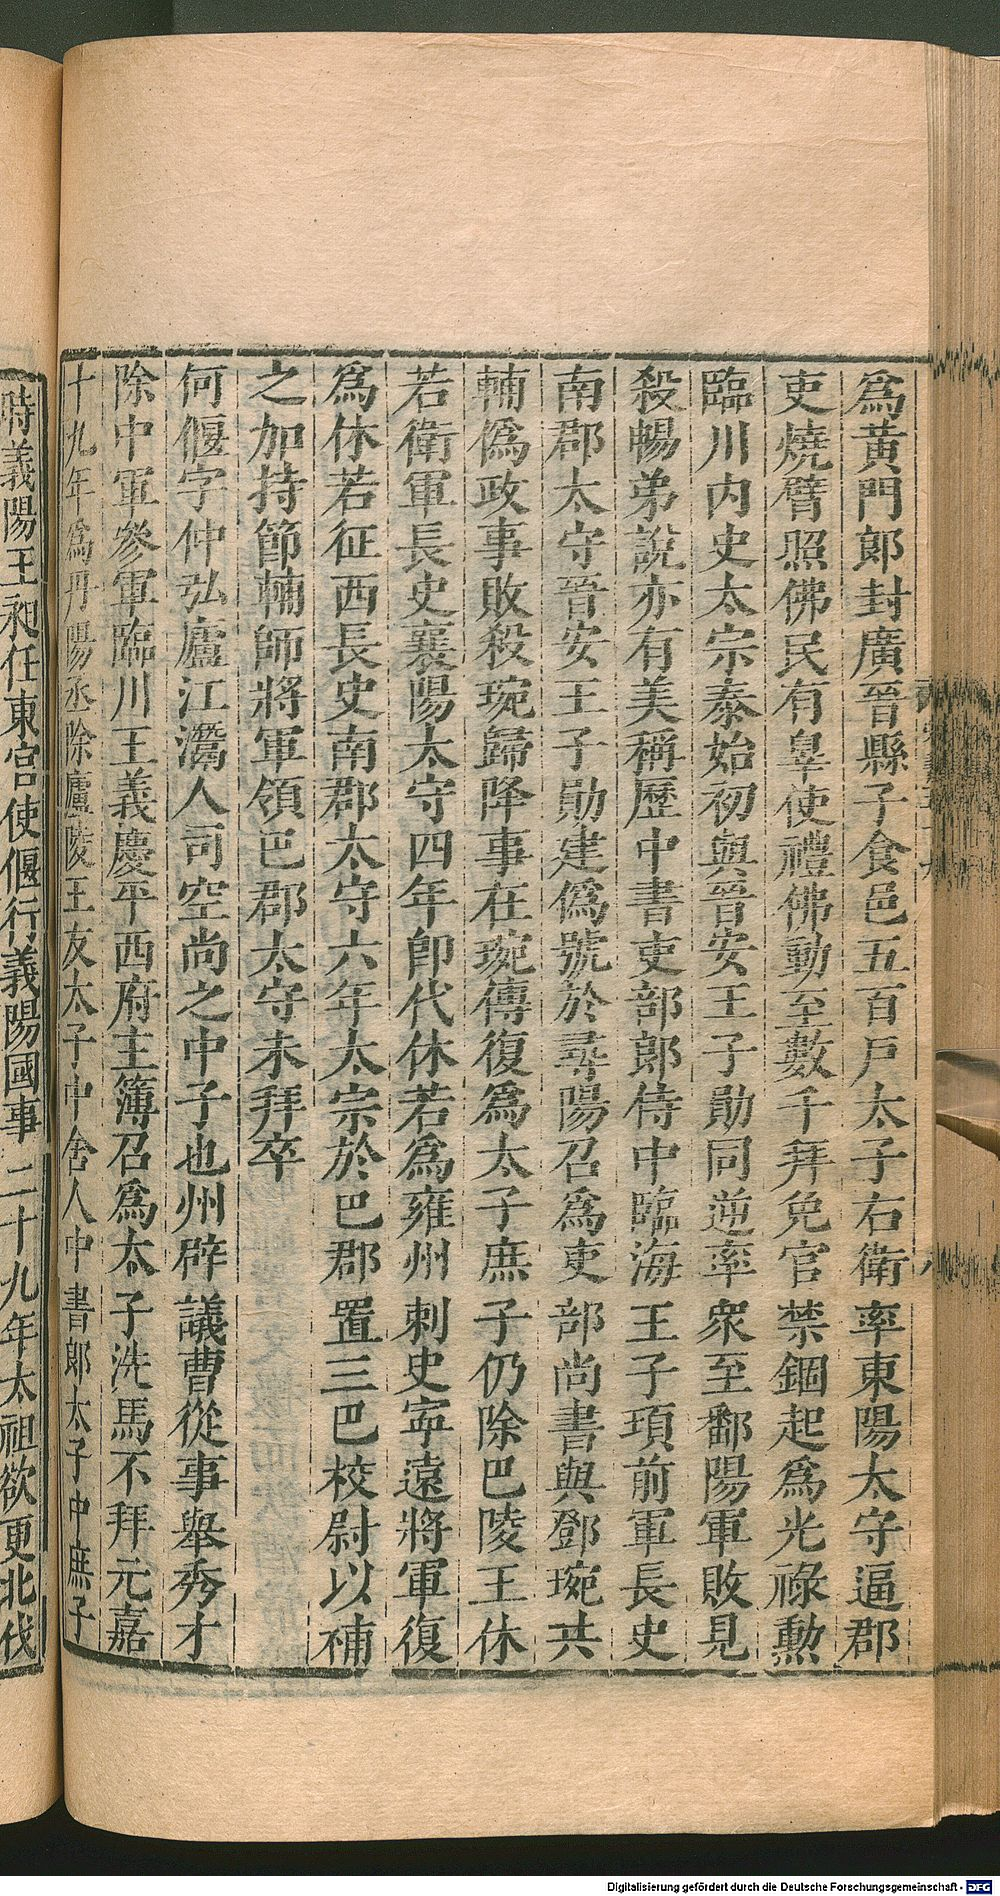 為黃門郎封廣晉縣子食邑五百戶太子右衛率東陽太守逼郡
吏燒臂照佛民有辠使禮佛動至數千拜免官禁錮起為光祿勲
臨川內史太宗泰始初與晉安王子勛同逆率衆至鄱陽軍敗見
殺暢弟說亦有美稱歷中書吏部郎侍中臨海王子項前軍長史
南郡太守晉安王子勛建偽號於尋陽召為吏部尚書與鄧琬共
輔偽政事敗殺琬歸降事在琬傳復為太子庶子仍除巴陵王休
若衛軍長史襄陽太守四年卽代休若為雍州刺史寧遠將軍復
為休若征西長史南郡太守六年太宗於巴郡置三巴校尉以補
之加持節輔師將軍領巴郡太守未拜卒
何偃字仲弘廬江灊人司空尚之中子也州辟議曹從事舉秀才
除中軍參軍臨川王義慶平西府主簿召為太子洗馬不拜元嘉
十九年為丹陽丞除廬陵王友太子中舍人中書郎太子中庶子
時義陽王昶任東宮使偃行義陽國事二十九年太祖欲更北伐
Digitalisierung gefördert durch die Deutsche Forschungsgemeinschaft - DFG